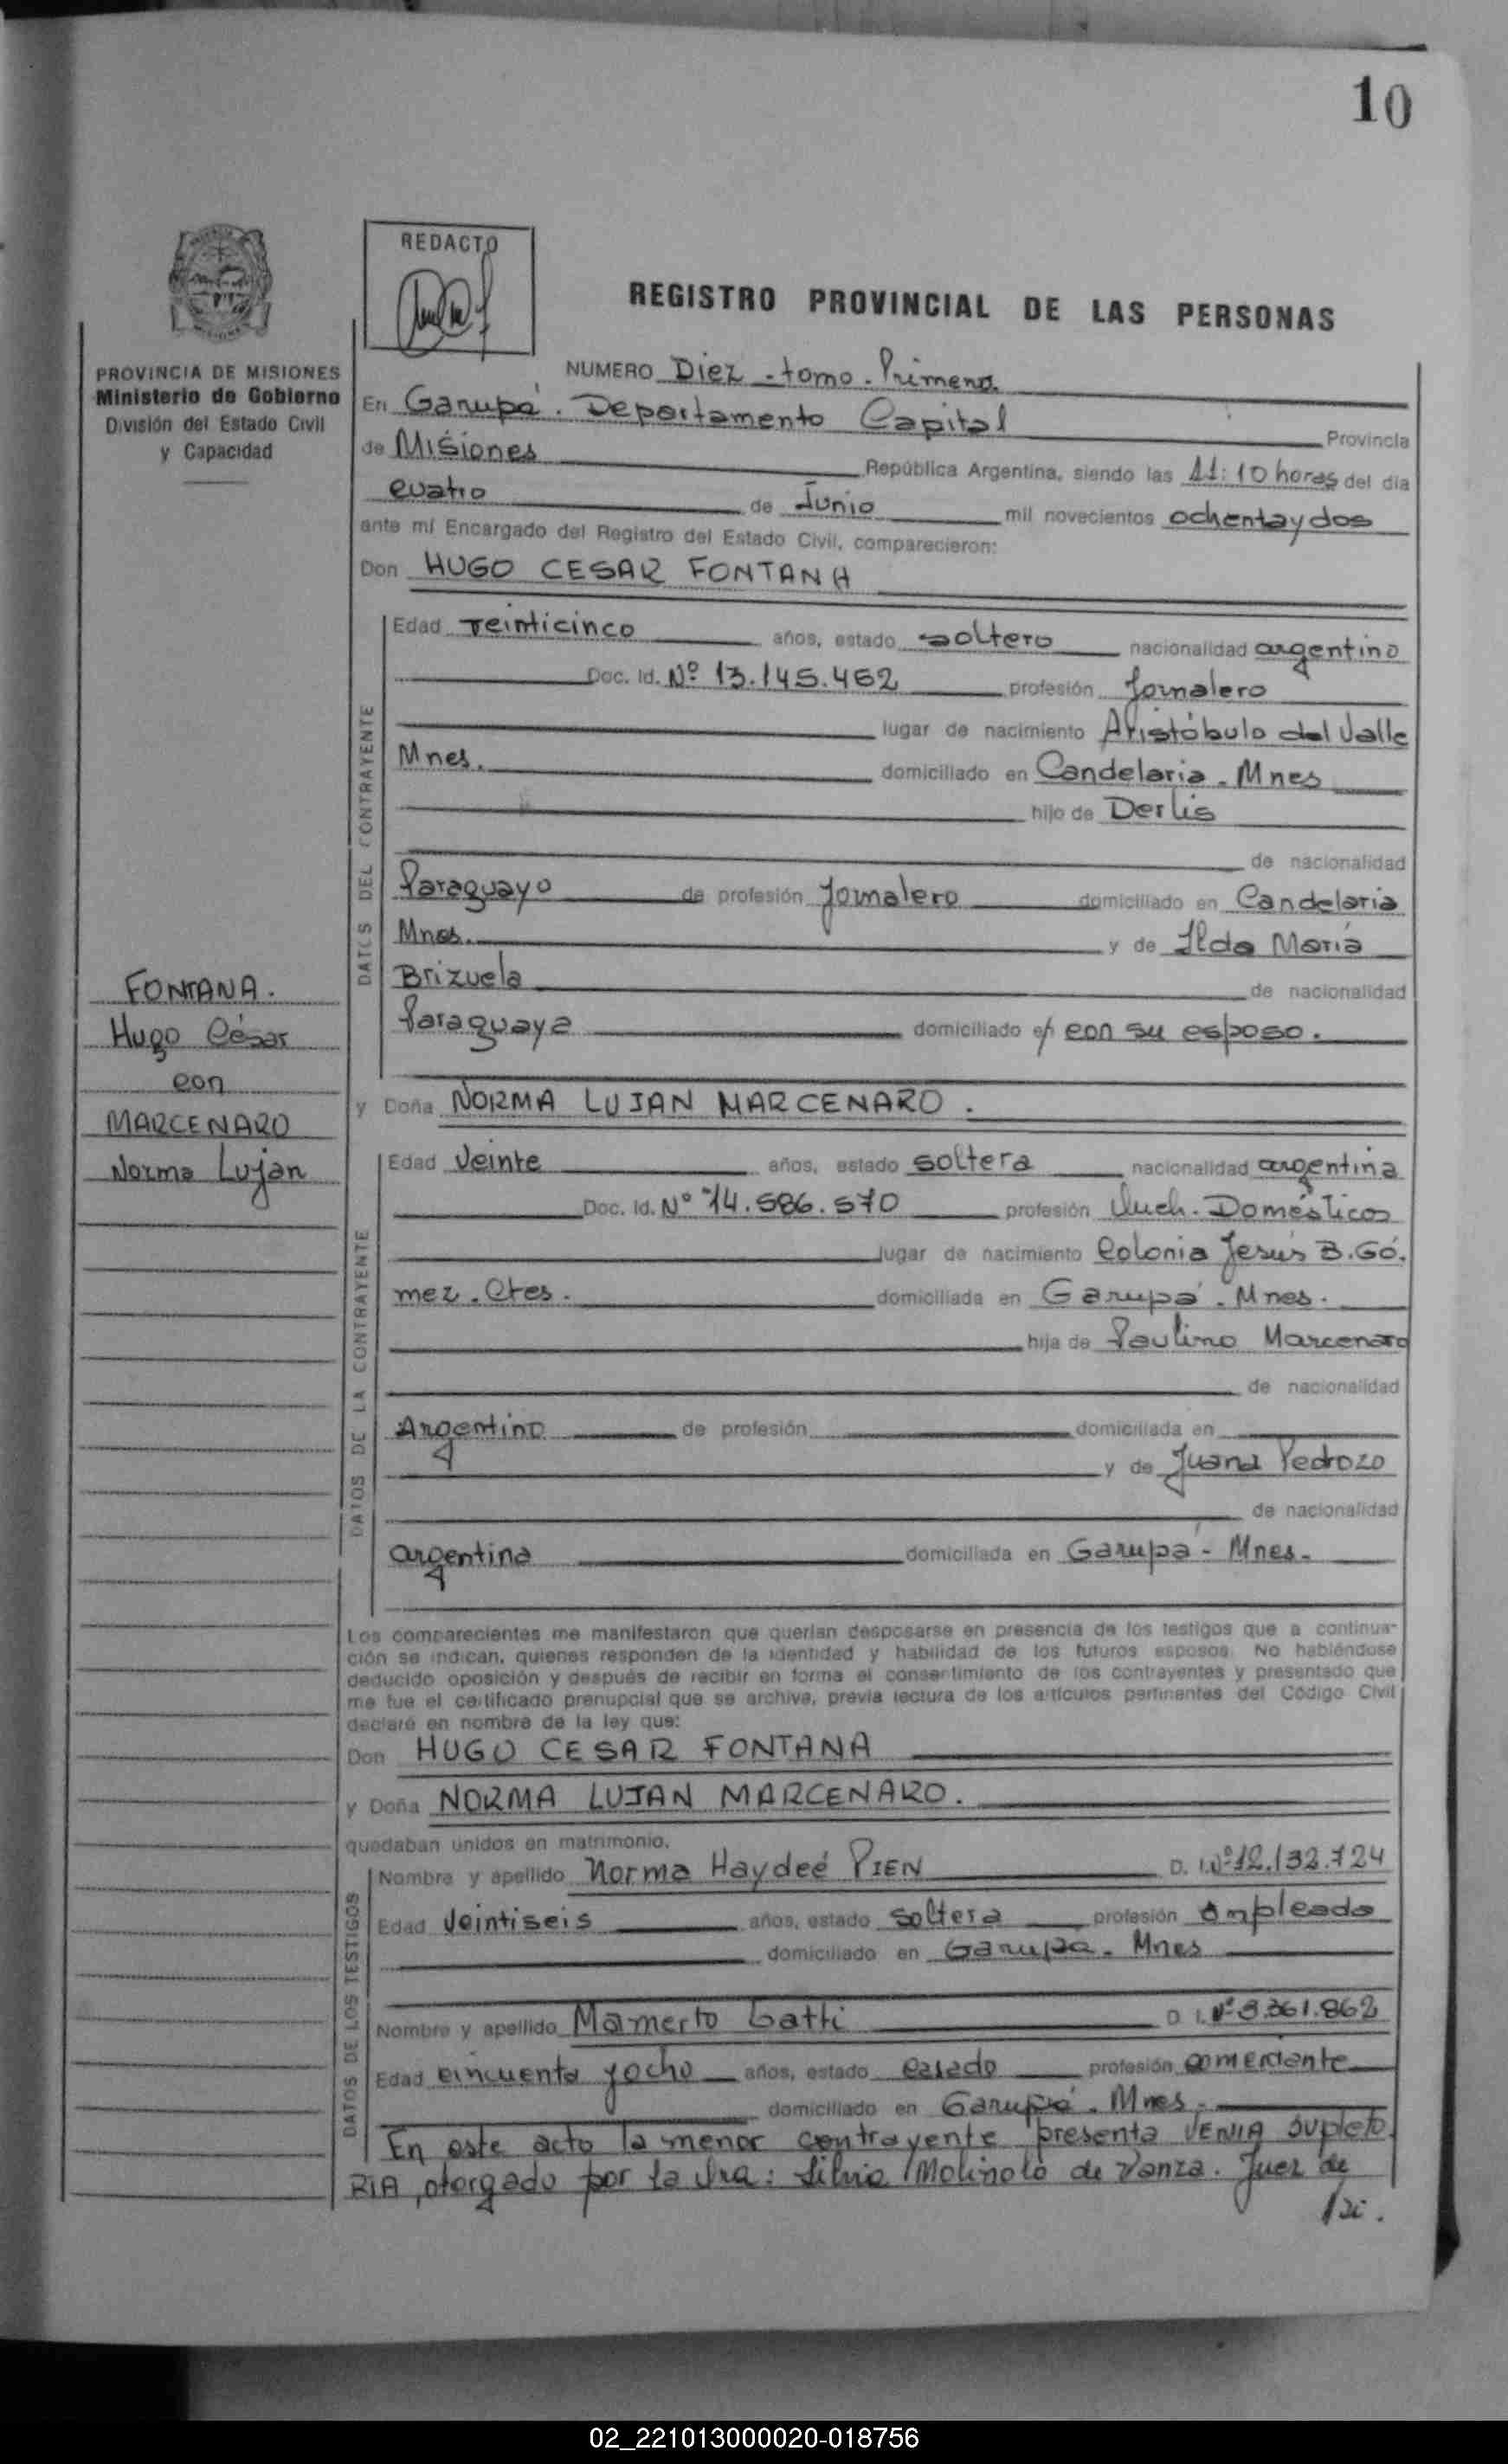 10
REDACTO
REGISTRO PROVINCIAL DE LAS PERSONAS
PROVINCIA DE MISIONES
Ministerio de Gobierno
División del Estado Civil
y Capacidad
NUMERO Diez - tomo - Primero
En Garupá. Departamento Capital Provincia
de Misiones República Argentina, siendo las 11:10 horas del día
cuatro de Junio mil novecientos ochentaydos
ante mí Encargado del Registro del Estado Civil, comparecieron:
Don HUGO CESAR FONTANA
DATOS DEL CONTRAYENTE
Edad veinticinco años, estado soltero nacionalidad argentino
Doc. Id. Nº 13.145.462 profesión Jornalero
lugar de nacimiento Aristóbulo del Valle
Mnes. domiciliado en Candelaria - Mnes
hijo de Derlis
de nacionalidad
Paraguayo de profesión Jornalero domiciliado en Candelaria
Mnes. y de Ilda María
Brizuela de nacionalidad
Paraguaya domiciliado con su esposo.
FONTANA.
Hugo César
con
MARCENARO
Norma Lujan
y Doña NORMA LUJAN MARCENARO.
DATOS DE LA CONTRAYENTE
Edad Veinte años, estado soltera nacionalidad argentina
Doc. Id. Nº 14.586.570 profesión Domésticos
lugar de nacimiento Colonia Jesús B. Gó.
mez. Ctes. domiciliada en Garupá. Mnes.
hija de Paulino Marcenaro
de nacionalidad
Argentino de profesión domiciliada en
y de Juana Pedrozo
de nacionalidad
argentina domiciliada en Garupá - Mnes.
Los comparecientes me manifestaron que querían desposarse en presencia de los testigos que a continua-
ción se indican, quienes responden de la identidad y habilidad de los futuros esposos. No habiéndose
deducido oposición y después de recibir en forma el consentimiento de los contrayentes y presentado que
me fue el certificado prenupcial que se archiva, previa lectura de los artículos pertinentes del Código Civil
declaré en nombre de la ley que:
Don HUGO CESAR FONTANA
y Doña NORMA LUJAN MARCENARO.
quedaban unidos en matrimonio.
DATOS DE LOS TESTIGOS
Nombre y apellido Norma Haydeé PIEN D. I. Nº 12.132.724
Edad Veintiseis años, estado soltera profesión Empleada
domiciliado en Garupa - Mnes
Nombre y apellido Mamerto Gatti D. I. Nº 3.361.862
Edad cincuenta yocho años, estado casado profesión comerciante
domiciliado en Garupá. Mnes.
En este acto la menor contrayente presenta VENIA SUPLETO
RIA, otorgado por la Dra: Silvia de Juez de
02_221013000020-018756